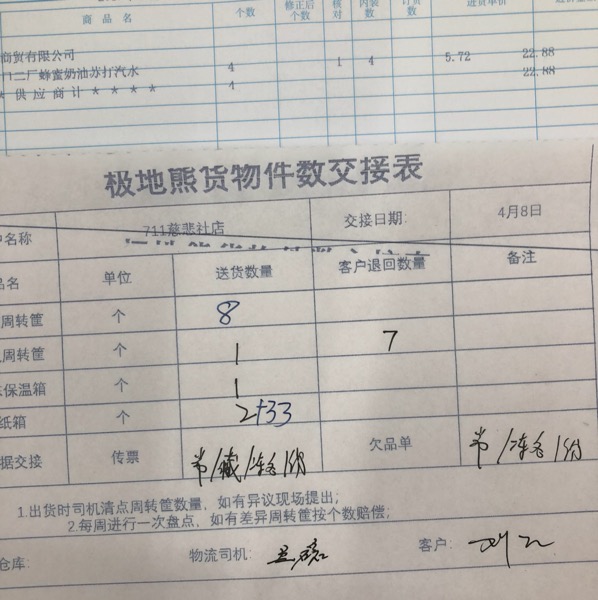 商品名 个数 修正后个数 核对 内装数 订货数 进货单价
商贸有限公司
口二厂蜂蜜奶油苏打汽水 4 1 4 5.72 22.88
* 供应商计 * * * * 4 22.88
极地熊货物件数交接表
名称 711慈悲社店 交接日期: 4月8日
品名 单位 送货数量 客户退回数量 备注
周转筐 个 8
周转筐 个 1 7
保温箱 个 1
纸箱 个 2+33
据交接 传票 欠品单
1.出货时司机清点周转筐数量,如有异议现场提出;
2.每周进行一次盘点,如有差异周转筐按个数赔偿;
仓库: 物流司机: 客户: